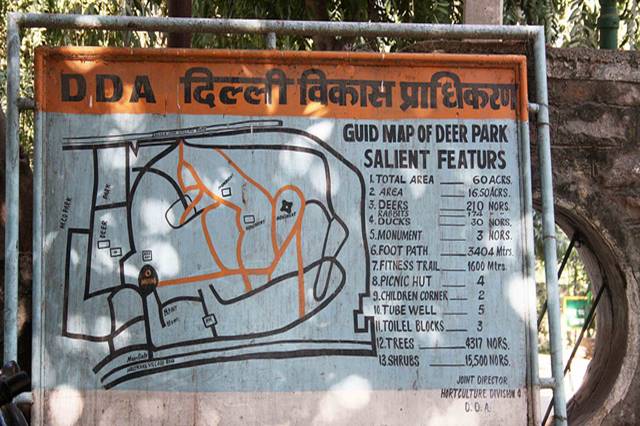 DDA दिल्ली विकास प्राधिकरण
GUID MAP OF DEER PARK
SALIENT FEATURS
1. TOTAL AREA 60 ACRS.
2. AREA 16.50 ACRS.
3. DEERS 210 NORS.
RABBITS 174 NORS.
4. DUCKS 30 NORS.
5. MONUMENT 3 NORS.
6. FOOT PATH 3404 Mtrs.
7. FITNESS TRAIL 1600 Mtrs.
8. PICNIC HUT 4
9. CHILDREN CORNER 2
10. TUBE WELL 5
11. TOILEL BLOCKS 3
12. TREES 4317 NORS.
13. SHRUBS 15,500 NORS.
JOINT DIRECTOR
HORTCULTURE DIVISION 4
D.D.A.
DEER PARK
MONUMENT